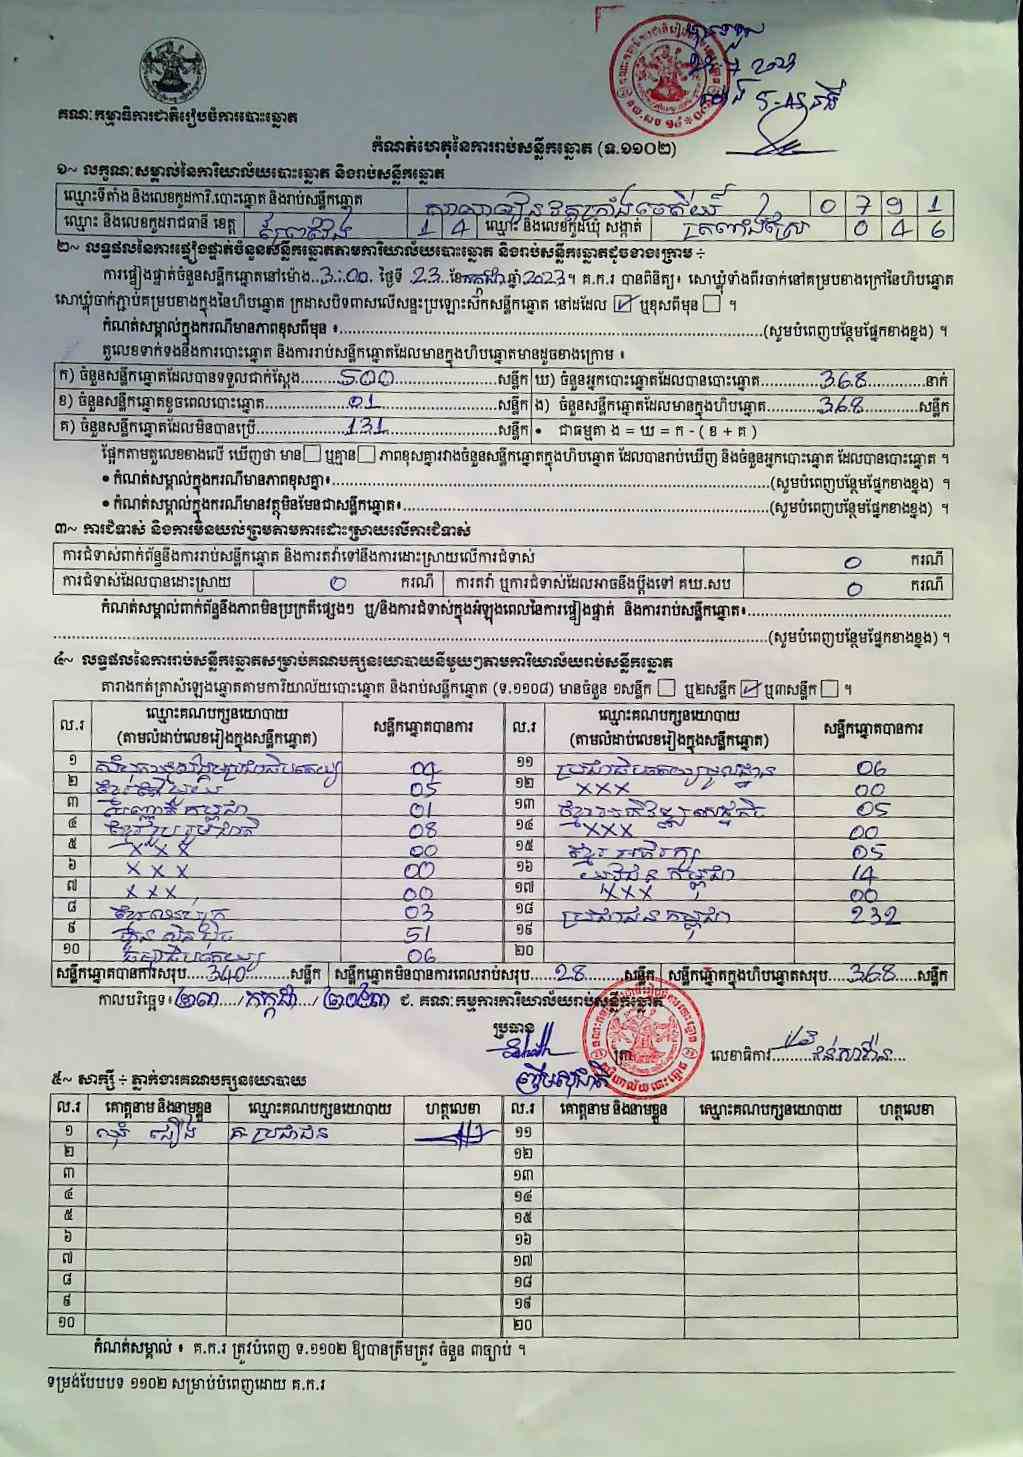 គណៈកម្មាធិការជាតិរៀបចំការបោះឆ្នោត
កំណត់ហេតុនៃការរាប់សន្លឹកឆ្នោត (ទ.១១០២)
១~ លក្ខណៈសម្គាល់នៃការិយាល័យបោះឆ្នោត និងរាប់សន្លឹកឆ្នោត
ឈ្មោះទីតាំង និងលេខកូដការិ.បោះឆ្នោត និងរាប់សន្លឹកឆ្នោត 0 7 9 1
ឈ្មោះ និងលេខកូដរាជធានី ខេត្ត ព្រៃវែង 1 4 ឈ្មោះ និងលេខកូដឃុំ សង្កាត់ 0 4 6
២~ លទ្ធផលនៃការផ្ទៀងផ្ទាត់ចំនួនសន្លឹកឆ្នោតតាមការិយាល័យបោះឆ្នោត និងរាប់សន្លឹកឆ្នោតដូចខាងក្រោម ÷
ការផ្ទៀងផ្ទាត់ចំនួនសន្លឹកឆ្នោតនៅម៉ោង..3:00. ថ្ងៃទី .23..ខែកក្កដា ឆ្នាំ2023។ គ.ក.រ បានពិនិត្យ៖ សោឃ្លុំទាំងពីរចាក់នៅគម្របខាងក្រៅនៃហិបឆ្នោត
សោឃ្លុំចាក់ភ្ជាប់គម្របខាងក្នុងនៃហិបឆ្នោត ក្រដាសបិទពាសលើសន្ទះប្រឡោះសឹកសន្លឹកឆ្នោត នៅដដែល ☑ ឬខុសពីមុន ☐ ។
កំណត់សម្គាល់ក្នុងករណីមានភាពខុសពីមុន ៖.....(សូមបំពេញបន្ថែមផ្នែកខាងខ្នង) ។
តួលេខទាក់ទងនឹងការបោះឆ្នោត និងការរាប់សន្លឹកឆ្នោតដែលមានក្នុងហិបឆ្នោតមានដូចខាងក្រោម ៖
ក) ចំនួនសន្លឹកឆ្នោតដែលបានទទួលជាក់ស្តែង.....500.....សន្លឹក ឃ) ចំនួនអ្នកបោះឆ្នោតដែលបានបោះឆ្នោត.....368.....នាក់
ខ) ចំនួនសន្លឹកឆ្នោតខូចពេលបោះឆ្នោត.....01.....សន្លឹក ង) ចំនួនសន្លឹកឆ្នោតដែលមានក្នុងហិបឆ្នោត.....368.....សន្លឹក
គ) ចំនួនសន្លឹកឆ្នោតដែលមិនបានប្រើ.....131.....សន្លឹក • ជាធម្មតា ង = ឃ = ក - ( ខ + គ )
ផ្អែកតាមតួលេខខាងលើ ឃើញថា មាន☐ ឬគ្មាន☐ ភាពខុសគ្នារវាងចំនួនសន្លឹកឆ្នោតក្នុងហិបឆ្នោត ដែលបានរាប់ឃើញ និងចំនួនអ្នកបោះឆ្នោត ដែលបានបោះឆ្នោត ។
• កំណត់សម្គាល់ក្នុងករណីមានភាពខុសគ្នា៖.....(សូមបំពេញបន្ថែមផ្នែកខាងខ្នង) ។
• កំណត់សម្គាល់ក្នុងករណីមានវត្ថុមិនមែនជាសន្លឹកឆ្នោត៖.....(សូមបំពេញបន្ថែមផ្នែកខាងខ្នង) ។
៣~ ការជំទាស់ និងការមិនយល់ព្រមតាមការដោះស្រាយលើការជំទាស់
ការជំទាស់ពាក់ព័ន្ធនឹងការរាប់សន្លឹកឆ្នោត និងការតវ៉ាទៅនឹងការដោះស្រាយលើការជំទាស់ 0 ករណី
ការជំទាស់ដែលបានដោះស្រាយ 0 ករណី ការតវ៉ា ឬការជំទាស់ដែលអាចនឹងប្តឹងទៅ គឃ.សប 0 ករណី
កំណត់សម្គាល់ពាក់ព័ន្ធនឹងភាពមិនប្រក្រតីផ្សេងៗ ឬ/និងការជំទាស់ក្នុងអំឡុងពេលនៃការផ្ទៀងផ្ទាត់ និងការរាប់សន្លឹកឆ្នោត៖.....
.....(សូមបំពេញបន្ថែមផ្នែកខាងខ្នង) ។
៤~ លទ្ធផលនៃការរាប់សន្លឹកឆ្នោតសម្រាប់គណបក្សនយោបាយនីមួយៗតាមការិយាល័យរាប់សន្លឹកឆ្នោត
តារាងកត់ត្រាសំឡេងឆ្នោតតាមការិយាល័យបោះឆ្នោត និងរាប់សន្លឹកឆ្នោត (ទ.១១០៨) មានចំនួន ១សន្លឹក ☐ ឬ២សន្លឹក ☑ ឬ៣សន្លឹក ☐ ។
ល.រ ឈ្មោះគណបក្សនយោបាយ (តាមលំដាប់លេខរៀងក្នុងសន្លឹកឆ្នោត) សន្លឹកឆ្នោតបានការ ល.រ ឈ្មោះគណបក្សនយោបាយ (តាមលំដាប់លេខរៀងក្នុងសន្លឹកឆ្នោត) សន្លឹកឆ្នោតបានការ
១ ១១ ប្រជាធិបតេយ្យមូលដ្ឋាន 06
២ 05 ១២ XXX 00
៣ កម្ពុជា 01 ១៣ ខ្មែរអភិវឌ្ឍន៍សេដ្ឋកិច្ច 05
៤ ខ្មែររួបរួមជាតិ 08 ១៤ XXX 00
៥ XXX 00 ១៥ ខ្មែរអភិរក្ស 05
៦ XXX 00 ១៦ យុវជនកម្ពុជា 14
៧ XXX 00 ១៧ XXX 00
៨ 03 ១៨ ប្រជាជនកម្ពុជា 232
៩ ហ៊្វុនស៊ិនប៉ិច 51 ១៩
១០ 06 ២០
សន្លឹកឆ្នោតបានការសរុប.....340.....សន្លឹក សន្លឹកឆ្នោតមិនបានការពេលរាប់សរុប.....28.....សន្លឹក សន្លឹកឆ្នោតក្នុងហិបឆ្នោតសរុប.....368.....សន្លឹក
កាលបរិច្ឆេទ៖ ២៣..../កក្កដា..../២០២៣ ជ. គណៈកម្មការការិយាល័យរាប់សន្លឹកឆ្នោត
ប្រធាន
ត្រា លេខាធិការ
៥~ សាក្សី ÷ ភ្នាក់ងារគណបក្សនយោបាយ
ល.រ គោត្តនាម និងនាមខ្លួន ឈ្មោះគណបក្សនយោបាយ ហត្ថលេខា ល.រ គោត្តនាម និងនាមខ្លួន ឈ្មោះគណបក្សនយោបាយ ហត្ថលេខា
១ គ.ប្រជាជន ១១
២ ១២
៣ ១៣
៤ ១៤
៥ ១៥
៦ ១៦
៧ ១៧
៨ ១៨
៩ ១៩
១០ ២០
កំណត់សម្គាល់ ៖ គ.ក.រ ត្រូវបំពេញ ទ.១១០២ ឱ្យបានត្រឹមត្រូវ ចំនួន ៣ច្បាប់ ។
ទម្រង់បែបបទ ១១០២ សម្រាប់បំពេញដោយ គ.ក.រ